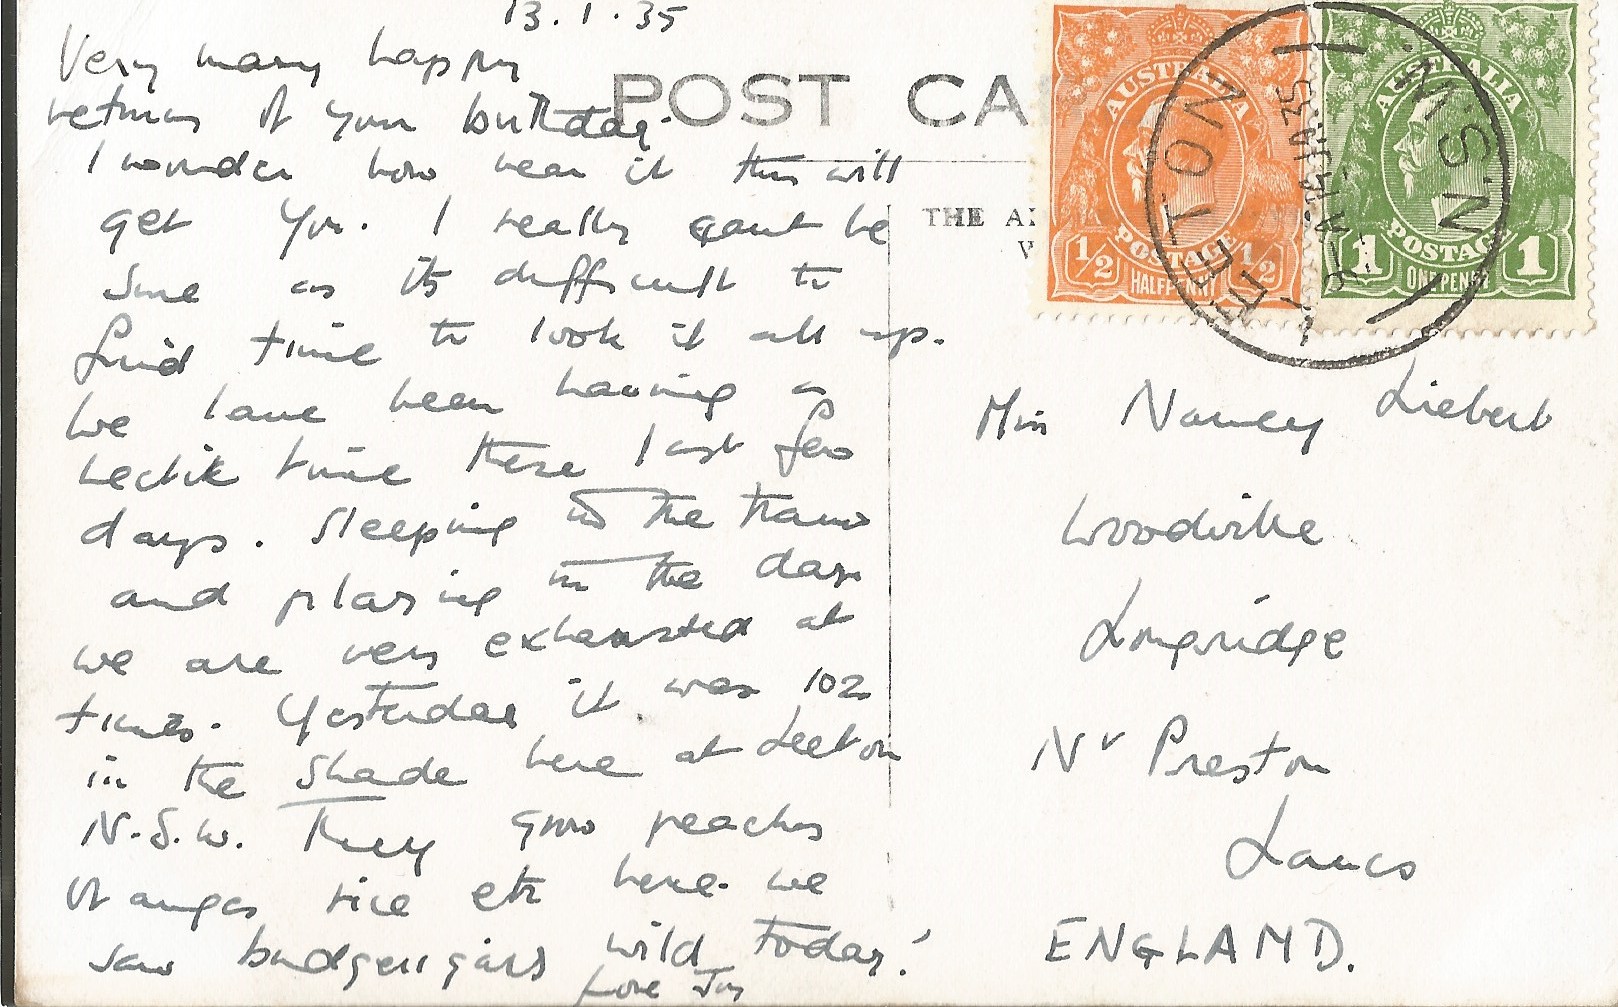 13.1.35
Very many happy
returns of your birthday.
I wonder how near it this will
get you. I really cant be
sure as its difficult to
find time to look it all up.
We have been having a
hectik time these last few
days. Sleeping in the train
and playing in the day
we are very exhausted at
times. Yesterday it was 102
in the shade here at Leeton
N.S.W. They grow peaches
oranges rice etc here. We
saw budgerigars wild today!
Love Joy
POST CA
THE A
AUSTRALIA
POSTAGE
1/2 HALFPENNY 1/2
AUSTRALIA
POSTAGE
1 ONE PENNY 1
LEETON
N.S.W.
JA 35
Miss Nancy Liebert
Woodville
Longridge
Nr Preston
Lancs
ENGLAND.